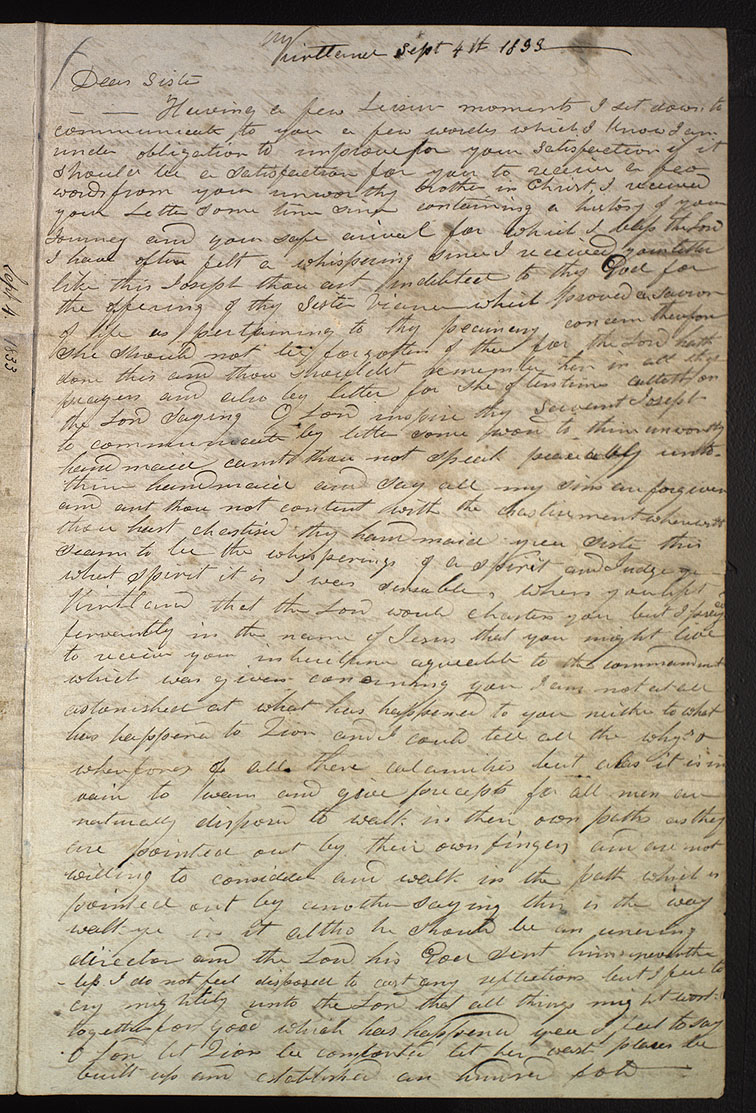 Kirtland Sept 4th 1833
Dear Sister
Having a few Leisure moments I set down to
communicate to you a few words which I know I am
under obligation to improve for your satisfaction if it
should be a satisfaction for you to receive a few
words from your unworthy brother in Christ, I received
your Letter some time since containing a history of your
Journey and your safe arival for which I bless the Lord
I have often felt a whispering since I received your letter
like this Joseph thou art indebted to thy God for
the offering of thy Sister Viana which proved a savior
of life as pertaining to thy pecuniary concern therefore
she should not be forgotten of thee for the Lord hath
done this and thou shouldst remember her in all thy
prayers and also by letter for she oftentimes calleth on
the Lord saying O Lord inspire thy Servent Joseph
to communicate by letter some word to thine unworthy
hand maid canst thou not speak peaceably unto
thine handmaid and say all my sins are forgiven
and art thou not content with the chastisement wherewith
thou hast chastised thy hand maid yea sister this
seams to be the whisperings of a spirit and Judge ye
what spirit it is I was sensable when you left
Kirtland that the Lord would chasten you but I prayed
fervantly in the name of Jesus that you might live
to receive your inheritance agreeable to the commandment
which was given concerning you I am not at all
astonished at what has happened to you neither to what
has happened to Zion and I could tell all the whys &
wherefores of all these calamities but alas it is in
vain to warn and give precepts for all men are
naturally disposed to walk in their own paths as they
are pointed out by their own fingers and are not
willing to consider and walk in the path which is
pointed out by another saying this is the way
walk ye in it altho he should be an unerring
director and the Lord his God sent him neverthe
-less I do not feel disposed to cast any reflections but I feel to
cry mightily unto the Lord that all things might work
together for good which has happened yea I feel to say
O Lord let Zion be comforted let her waste places be
built up and established an hundred fold
Sept 4. 1833